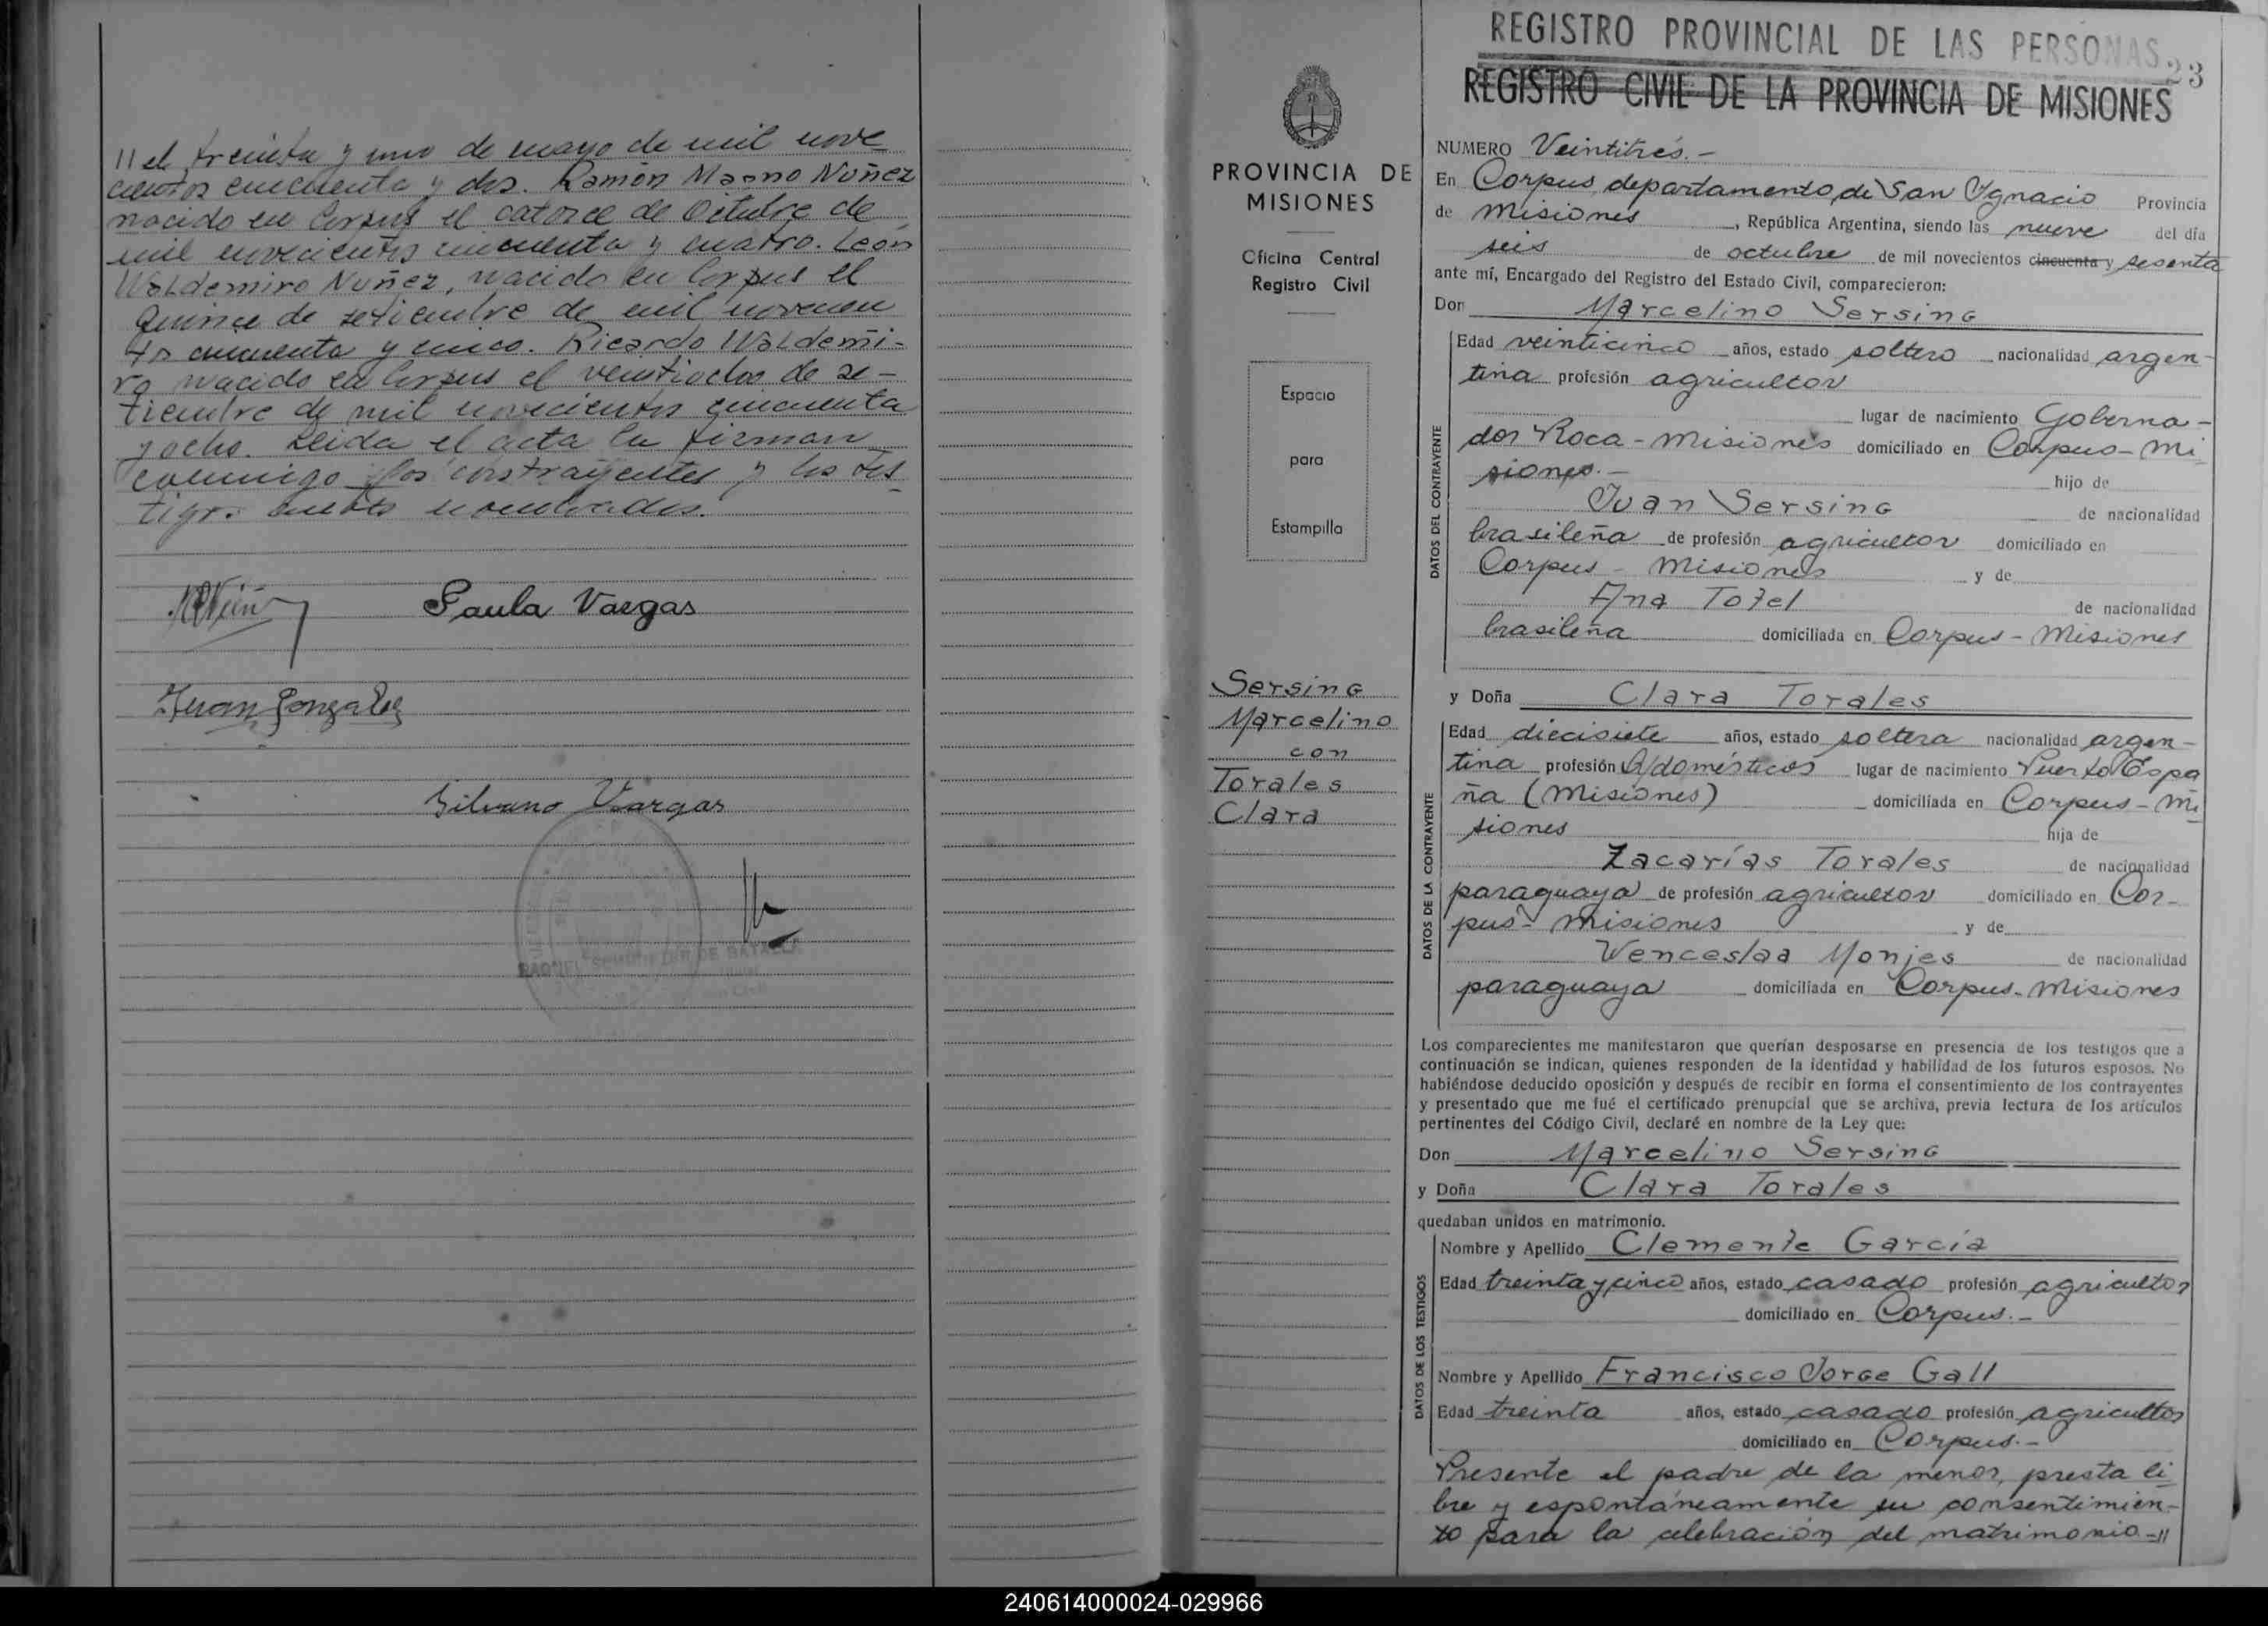 // el treinta y uno de mayo de mil nove
cientos cincuenta y dos. Ramón Magno Nuñez
nacido en Corpus el catorce de Octubre de
mil novecientos cincuenta y cuatro. León
Waldemiro Nuñez, nacido en Corpus el
quince de setiembre de mil novecien
tos cincuenta y cinco. Ricardo Waldemi-
ro nacido en Corpus el veintiocho de se-
tiembre de mil novecientos cincuenta
y ocho. Leida el acta la firman
conmigo los contrayentes y los tes
tigos antes nombrados.
Paula Vargas
Juan Gonzalez
Silvano Vargas
RAQUEL DE BATALLA
PROVINCIA DE
MISIONES
Oficina Central
Registro Civil
Espacio
para
Estampilla
Sersing
Marcelino
con
Torales
Clara
REGISTRO PROVINCIAL DE LAS PERSONAS
23
REGISTRO CIVIL DE LA PROVINCIA DE MISIONES
NUMERO Veintitrés.-
En Corpus, departamento de San Ygnacio Provincia
de Misiones, República Argentina, siendo las nueve del día
seis de octubre de mil novecientos cincuenta y sesenta
ante mí, Encargado del Registro del Estado Civil, comparecieron:
Don Marcelino Sersing
DATOS DEL CONTRAYENTE
Edad veinticinco años, estado soltero nacionalidad argen-
tina profesión agricultor
lugar de nacimiento Goberna-
dor Roca - Misiones domiciliado en Corpus - Mi
siones.- hijo de
Juan Sersing de nacionalidad
brasileña de profesión agricultor domiciliado en
Corpus - Misiones y de
Ana Tofel de nacionalidad
brasileña domiciliada en Corpus - Misiones
y Doña Clara Torales
DATOS DE LA CONTRAYENTE
Edad diecisiete años, estado soltera nacionalidad argen-
tina profesión Q/domésticos lugar de nacimiento Puerto Espa
ña (Misiones) domiciliada en Corpus - Mi
siones hija de
Zacarías Torales de nacionalidad
paraguaya de profesión agricultor domiciliado en Cor-
pus - Misiones y de
Wenceslaa Monjes de nacionalidad
paraguaya domiciliada en Corpus - Misiones
Los comparecientes me manifestaron que querían desposarse en presencia de los testigos que a
continuación se indican, quienes responden de la identidad y habilidad de los futuros esposos. No
habiéndose deducido oposición y después de recibir en forma el consentimiento de los contrayentes
y presentado que me fué el certificado prenupcial que se archiva, previa lectura de los artículos
pertinentes del Código Civil, declaré en nombre de la Ley que:
Don Marcelino Sersing
y Doña Clara Torales
quedaban unidos en matrimonio.
DATOS DE LOS TESTIGOS
Nombre y Apellido Clemente García
Edad treinta y cinco años, estado casado profesión agricultor
domiciliado en Corpus.-
Nombre y Apellido Francisco Jorge Gall
Edad treinta años, estado casado profesión agricultor
domiciliado en Corpus.-
Presente el padre de la menor, presta li
bre y espontáneamente su consentimien-
to para la celebración del matrimonio-//
240614000024-029966